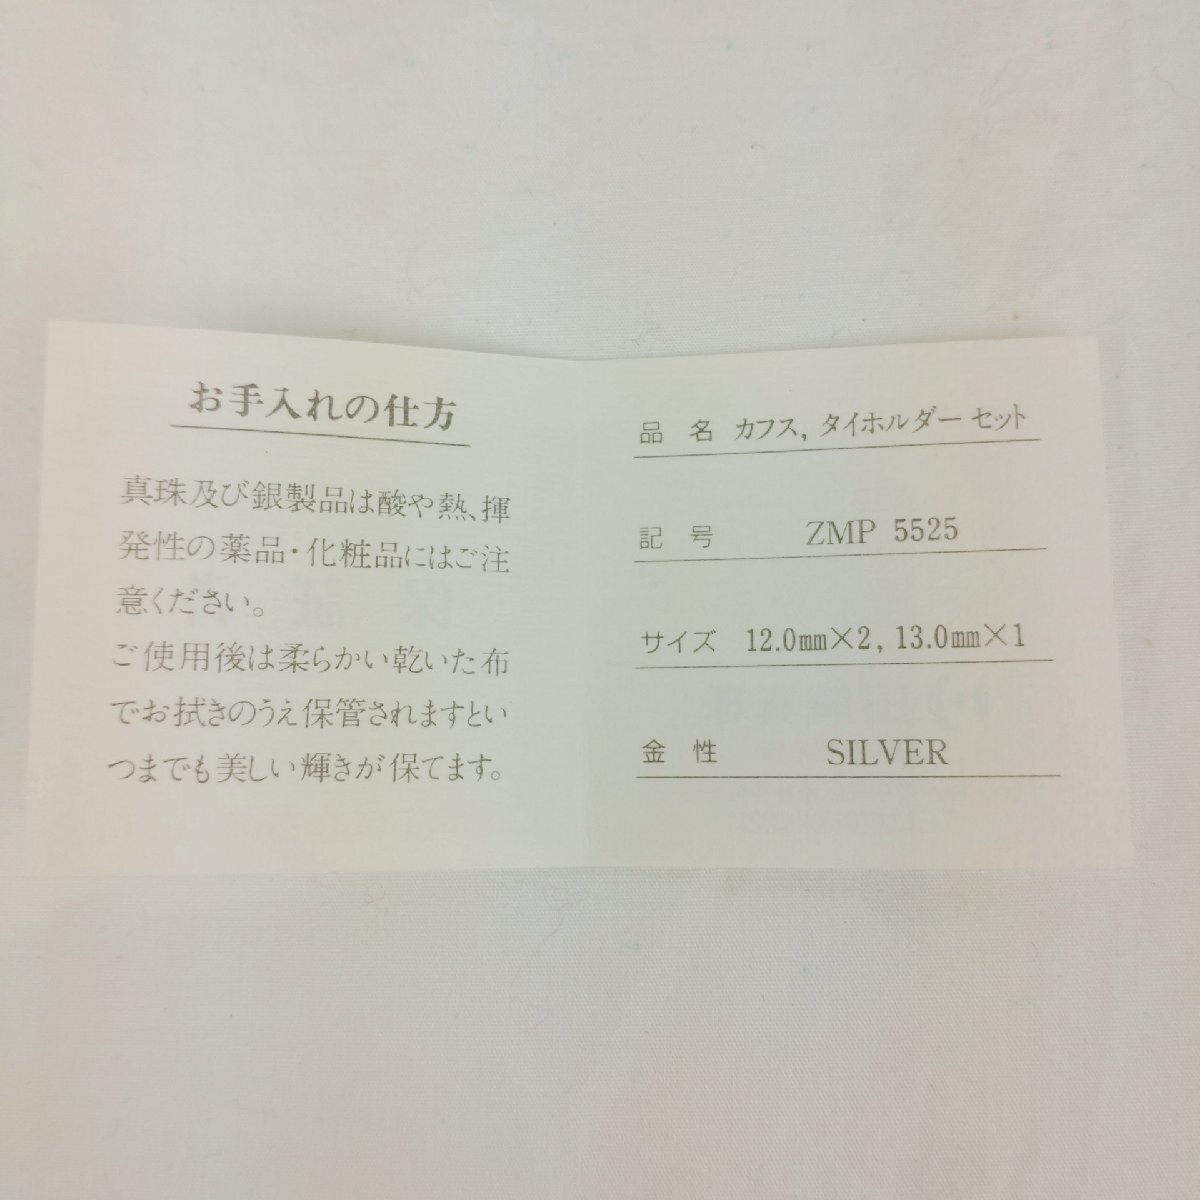 お手入れの仕方
真珠及び銀製品は酸や熱、揮
発性の薬品・化粧品にはご注
意ください。
ご使用後は柔らかい乾いた布
でお拭きのうえ保管されますとい
つまでも美しい輝きが保てます。
品名 カフス, タイホルダーセット
記号 ZMP 5525
サイズ 12.0㎜×2, 13.0㎜×1
金性 SILVER